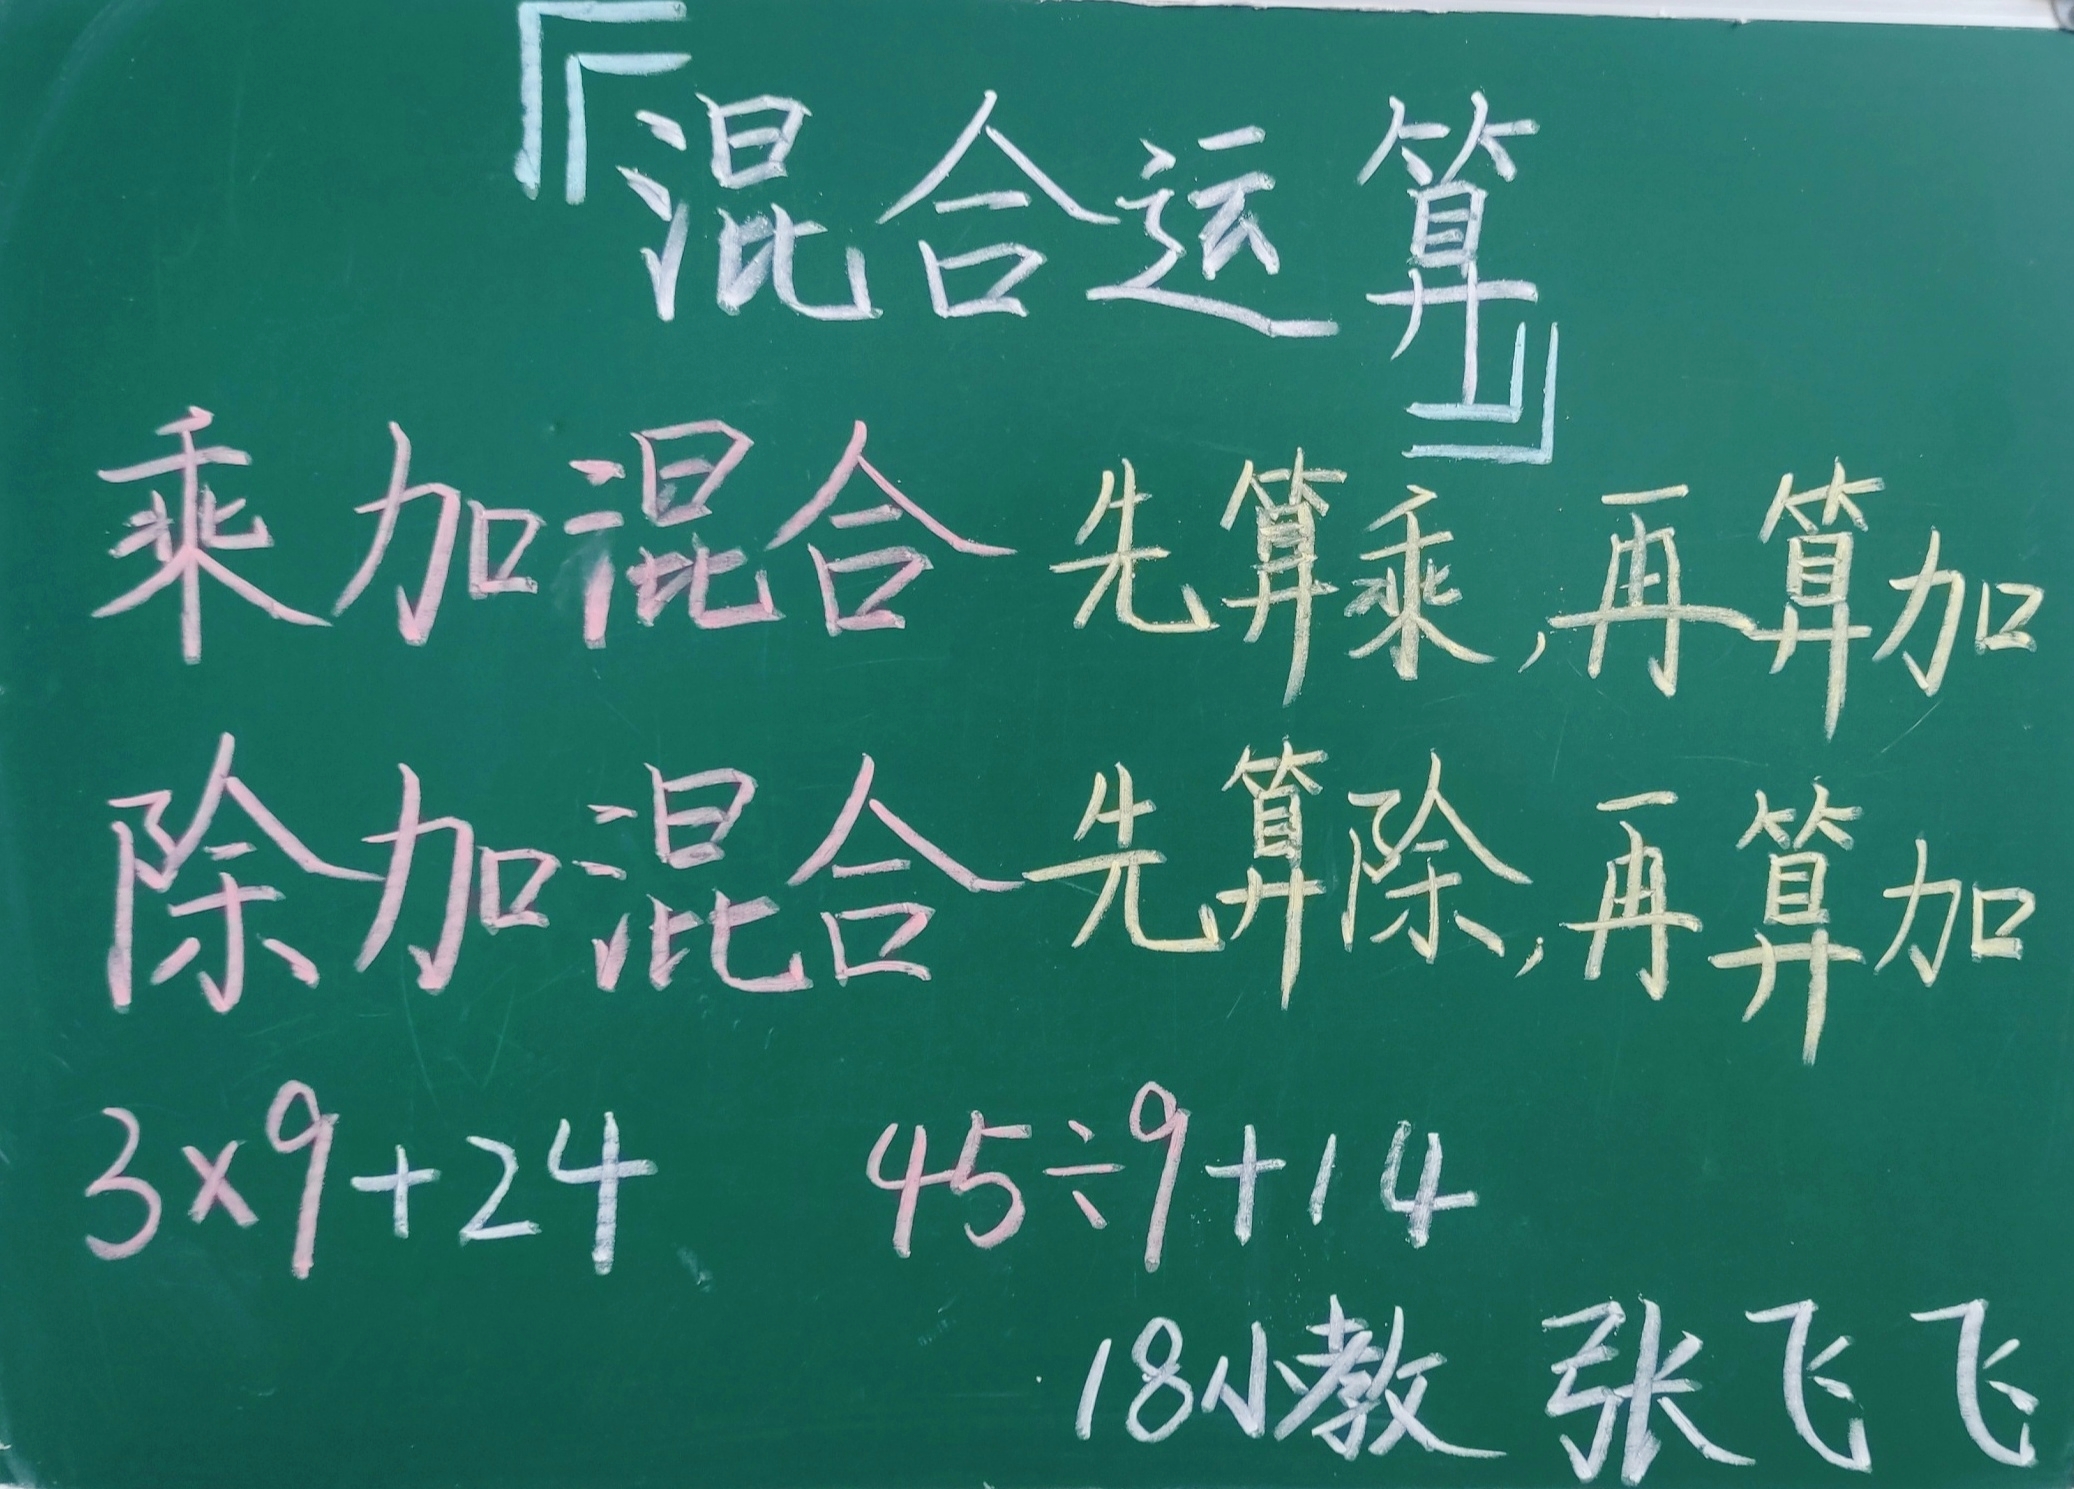 『混合运算』
乘加混合 先算乘,再算加
除加混合 先算除,再算加
3×9+24 45÷9+14
18小教 张飞飞